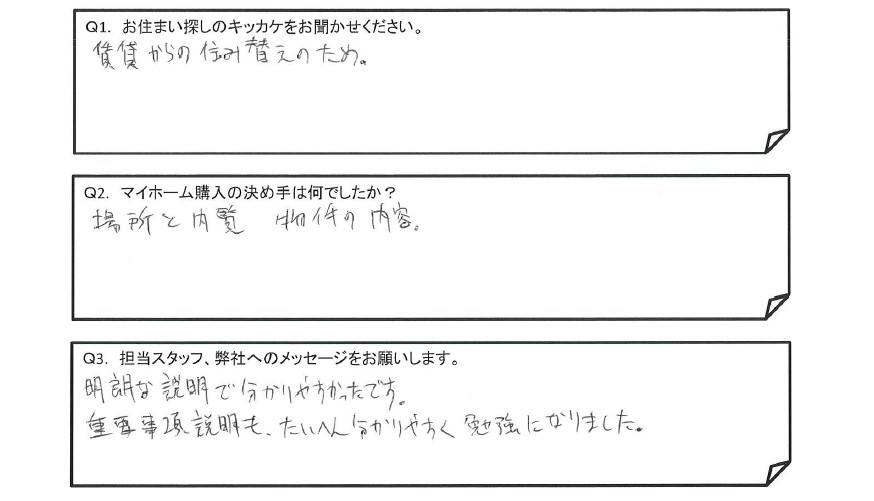 Q1. お住まい探しのキッカケをお聞かせください。
賃貸からの住み替えのため。
Q2. マイホーム購入の決め手は何でしたか？
場所と内覧 物件の内容。
Q3. 担当スタッフ、弊社へのメッセージをお願いします。
明朗な説明で分かりやすかったです。
重要事項説明も、たいへん分かりやすく勉強になりました。